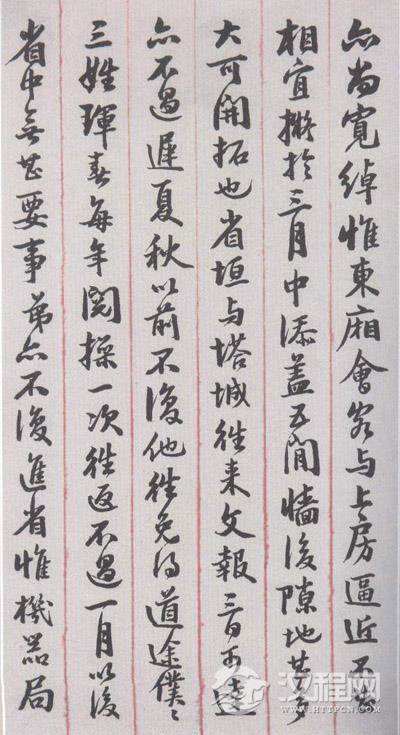 亦尚寬綽惟東廂會客与上房逼近不
相宜擬於三月中添蓋五間墻後隙地甚多
大可開拓也省垣与塔城往来文報三日可達
亦不過遲夏秋以前不復他往免得道途僕〻
三姓琿春每年閱操一次往返不過一月以後
省中無甚要事弟亦不復進省惟機器局
汉程网
HTTPCN.COM